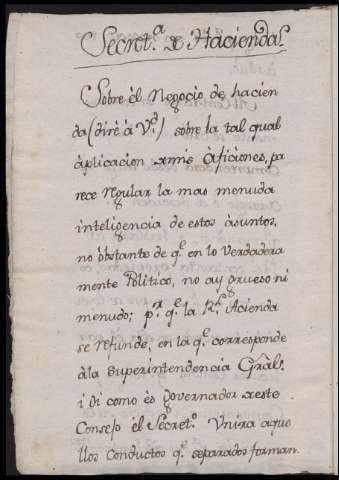 Secret.ª de Haciendaˢ
Sobre èl Negocio de hacien
da (dirè à V.ᵈ) sobre la tal qual
àplicacion de mis Àficiònes, pa
rece regular la mas menuda
inteligencia de estos àsuntos,
no òbstante de q.ᵉ en lo Verdadera
mente Politico, no ay grueso ni
menudo; p.ʳ q.ᵉ la R.ˡ Acienda
se refunde, en la q.ᵉ corresponde
àla Superintendencia Grâl.
i Si como ès Governador deeste
Consejo el Secret.º Vnira aque
llos Conductos q.ᵉ separados forman